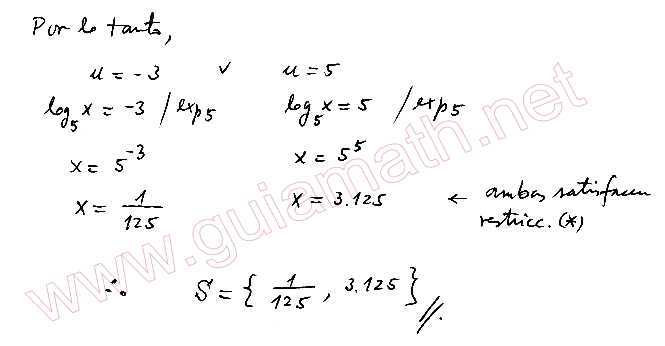 Por lo tanto,
u = -3 ∨ u = 5
log₅ x = -3 / exp₅ log₅ x = 5 / exp₅
x = 5⁻³ x = 5⁵
x = 1/125 x = 3.125 ← ambas satisfacen
restricc. (*)
∴ S = { 1/125 , 3.125 } //.
www.guiamath.net